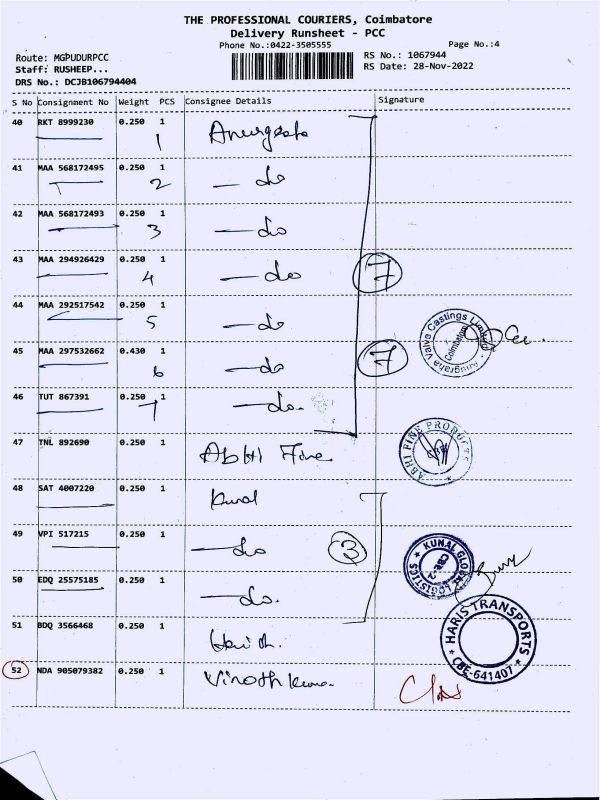 THE PROFESSIONAL COURIERS, Coimbatore
Delivery Runsheet - PCC
Phone No.:0422-3505555
Page No.:4
Route: MGPUDURPCC
RS No.: 1067944
Staff: RUSHEEP...
RS Date: 28-Nov-2022
DRS No.: DCJB106794404
S No Consignment No Weight PCS Consignee Details Signature
40 RKT 8999230 0.250 1
1
41 MAA 568172495 0.250 1
2 — do
42 MAA 568172493 0.250 1
3 — do
43 MAA 294926429 0.250 1
4 — do 7
44 MAA 292517542 0.250 1
5 — do
Anugraha Valve Castings Limited
Coimbatore
45 MAA 297532662 0.430 1
6 — do 7
46 TUT 867391 0.250 1
7 — do.
47 TNL 892690 0.250 1
Abhi Fine
ABHI FINE PRODUCTS
CBE
48 SAT 4007220 0.250 1
Kunal
49 VPI 517215 0.250 1
— do 3
KUNAL GLOBAL LOGISTICS
CBE-2
50 EDQ 25575185 0.250 1
— do.
51 BDQ 3566468 0.250 1
HARIS TRANSPORTS
CBE-641407
52 NDA 905079382 0.250 1
Vinoth Kumar